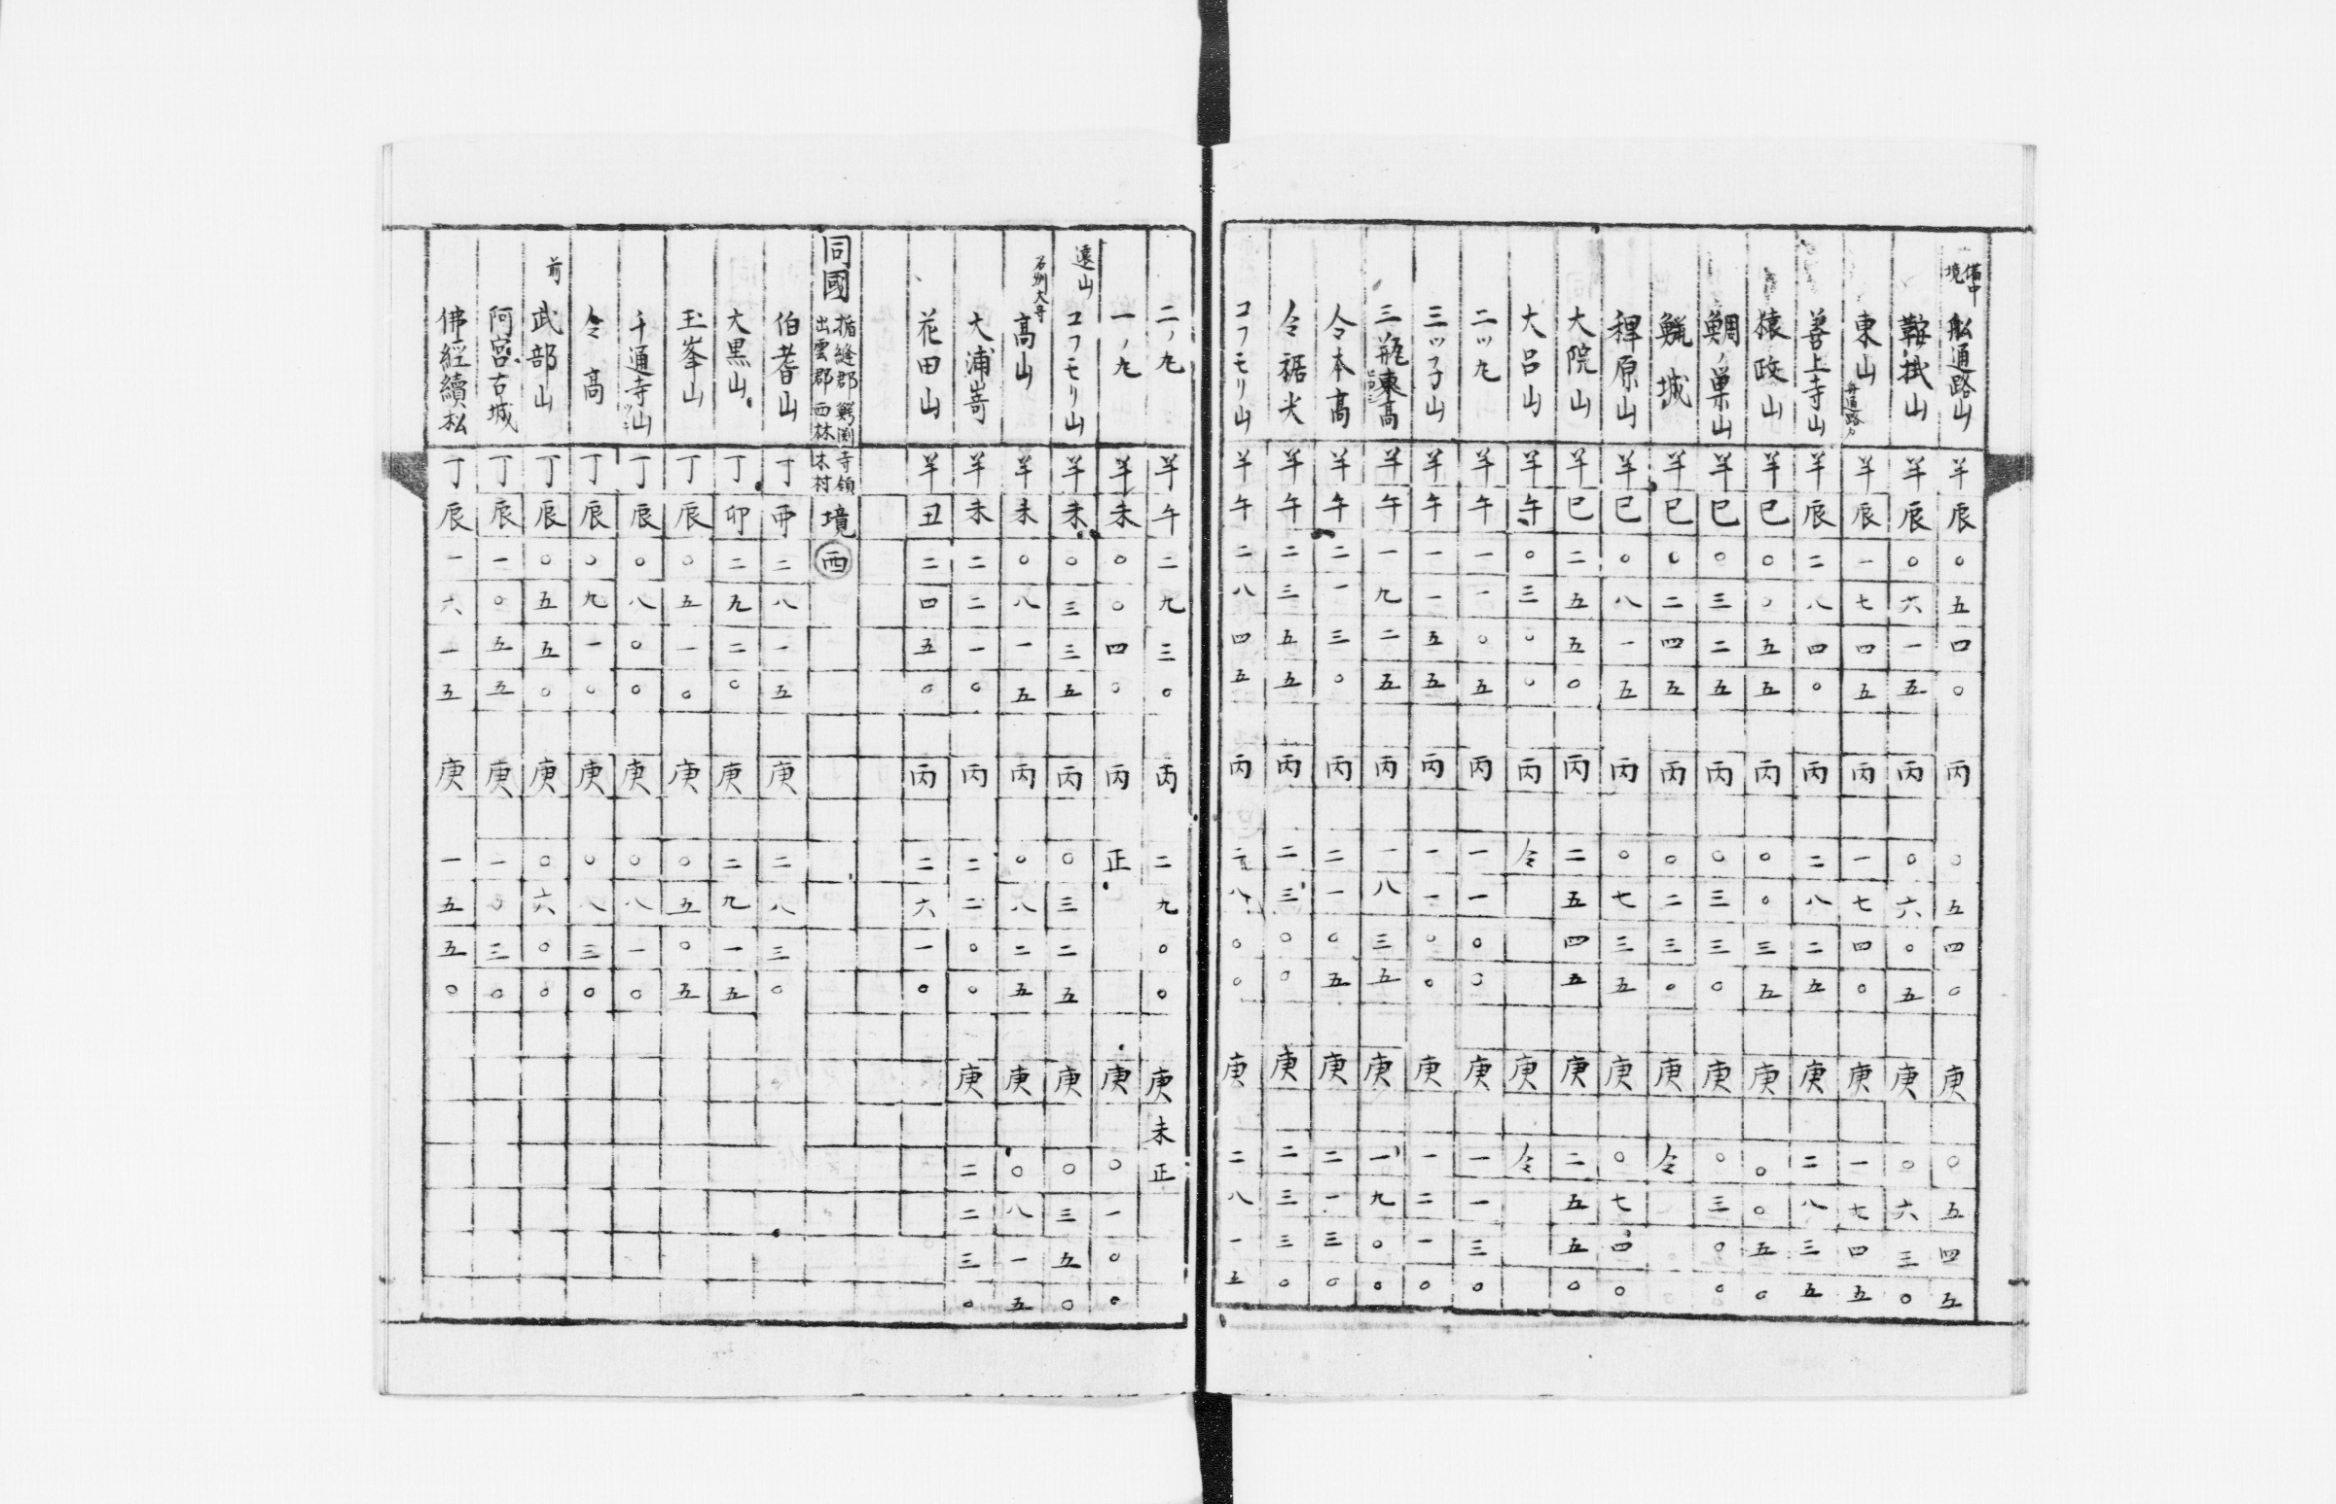 備中境 船通路山 羊辰〇五四〇 丙〇五四〇 庚〇五四五
鞍掛山 羊辰〇六一五 丙〇六〇五 庚〇六三〇
東山 羊辰一七四五 丙一七四〇 庚一七四五
善上寺山 羊辰二八四〇 丙二八二五 庚二八三五
猿政山 羊巳〇〇五五 丙〇〇三五 庚〇〇五〇
鯛ノ巣山 羊巳〇三二五 丙〇三三〇 庚〇三〇〇
城 羊巳〇二四五 丙〇二三〇 庚仝
稗原山 羊巳〇八一五 丙〇七三五 庚〇七四〇
大院山 羊巳二五五〇 丙二五四五 庚二五五〇
大呂山 羊午〇三〇〇 丙仝 庚仝
二ツ九 羊午一一〇五 丙一一〇〇 庚一一三〇
三ツ子山 羊午一一五五 丙一一〇〇 庚一二一〇
三瓶東高 羊午一九二五 丙一八三五 庚一九〇〇
仝本高 羊午二一三〇 丙二一〇五 庚二一三〇
仝裾尖 羊午二三五五 丙二三〇〇 庚二三三〇
コフモリ山 羊午二八四五 丙二八〇〇 庚二八一五
二ノ九 羊午二九三〇 丙二九〇〇 庚未正
一ノ九 羊未〇〇四〇 丙正 庚〇一〇〇
遠山 コフモリ山 羊未〇三三五 丙〇三二五 庚〇三五〇
高山 羊未〇八一五 丙〇八二五 庚〇八一五
大浦嵜 羊未二二一〇 丙二二〇〇 庚二二三〇
花田山 羊丑二四五〇 丙二六一〇
同國 楯縫郡鰐渕寺領 出雲郡西林木村 境 西
伯耆山 丁 二八一五 庚二八三〇
大黒山 丁卯二九二〇 庚二九一五
玉峯山 丁辰〇五一〇 庚〇五〇五
千通寺山 丁辰〇八〇〇 庚〇八一〇
仝高 丁辰〇九一〇 庚〇八三〇
前 武部山 丁辰〇五五〇 庚〇六〇〇
阿宮古城 丁辰一〇五五 庚一〇三〇
佛經續松 丁辰一六一五 庚一五五〇